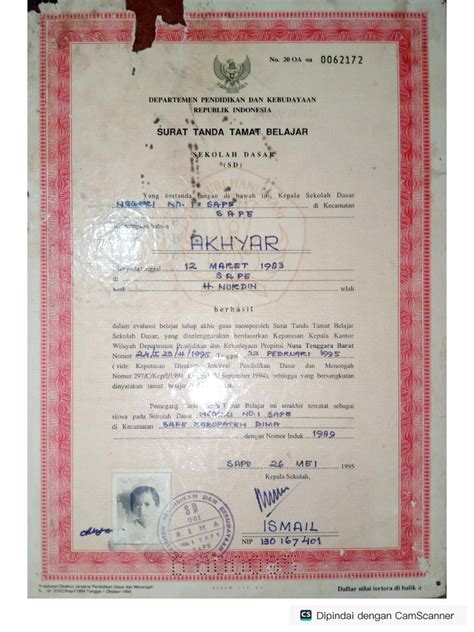 No. 20 OA oa 0062172
DEPARTEMEN PENDIDIKAN DAN KEBUDAYAAN
REPUBLIK INDONESIA
SURAT TANDA TAMAT BELAJAR
SEKOLAH DASAR
(SD)
Yang bertanda tangan di bawah ini, Kepala Sekolah Dasar
NEGERI NO. 1 SAPE di Kecamatan
SAPE
bahwa
AKHYAR
pada tanggal 12 MARET 1983
di SAPE
anak H. NURDIN telah
berhasil
dalam evaluasi belajar tahap akhir guna memperoleh Surat Tanda Tamat Belajar
Sekolah Dasar, yang diselenggarakan berdasarkan Keputusan Kepala Kantor
Wilayah Departemen Pendidikan dan Kebudayaan Propinsi Nusa Tenggara Barat
Nomor 1995 Tanggal 22 FEBRUARI 1995
( vide Keputusan Direktur Jenderal Pendidikan Dasar dan Menengah
Nomor 297/C/Kep/I/1994 September 1994), sehingga yang bersangkutan
dinyatakan tamat belajar
Pemegang Surat Tanda Tamat Belajar ini terakhir tercatat sebagai
siswa pada Sekolah Dasar NEGERI NO.1 SAPE
di Kecamatan SAPE KABUPATEN BIMA
dengan Nomor Induk 1989
SAPE 26 MEI 1995
Kepala Sekolah,
ISMAIL
NIP 130 167 401
SD
BIMA
NO. 1 SAPE
SAPE
Keputusan Direktur Jenderal Pendidikan Dasar dan Menengah
Tanggal 1 Oktober 1994
Daftar nilai tertera di balik
CS Dipindai dengan CamScanner